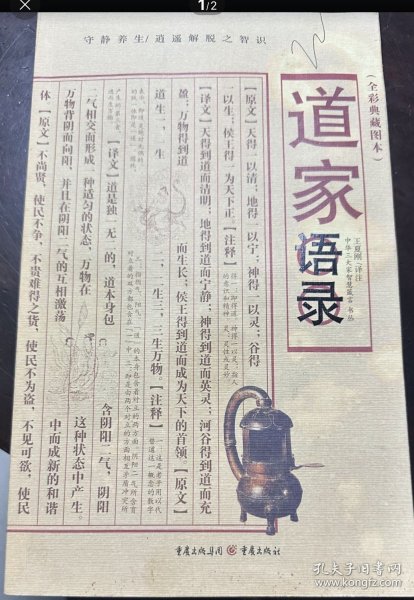 1/2
守静养生/逍遥解脱之智识
(全彩典藏图本)
道家
语录
王夏刚 (译注)
中华三大家智慧箴言书丛
【原文】天得一以清；地得一以宁；神得一以灵；谷得
一以生；侯王得一为天下正。【注释】
【译文】天得到道而清明；地得到道而宁静；神得到道而英灵；河谷得到道而充
盈；万物得到道
而生长；侯王得到道而成为天下的首领。【原文】
道生一，一生
二，二生三，三生万物。【注释】
【译文】道是独一无二的，道本身包
含阴阳二气，阴阳
二气相交而形成一种适匀的状态，万物在
这种状态中产生。
万物背阴而向阳，并且在阴阳二气的互相激荡
中而成新的和谐
体【原文】不尚贤，使民不争，不贵难得之货，使民不为盗，不见可欲，使民
重庆出版集团 重庆出版社
孔夫子旧书网
www.kongfz.com